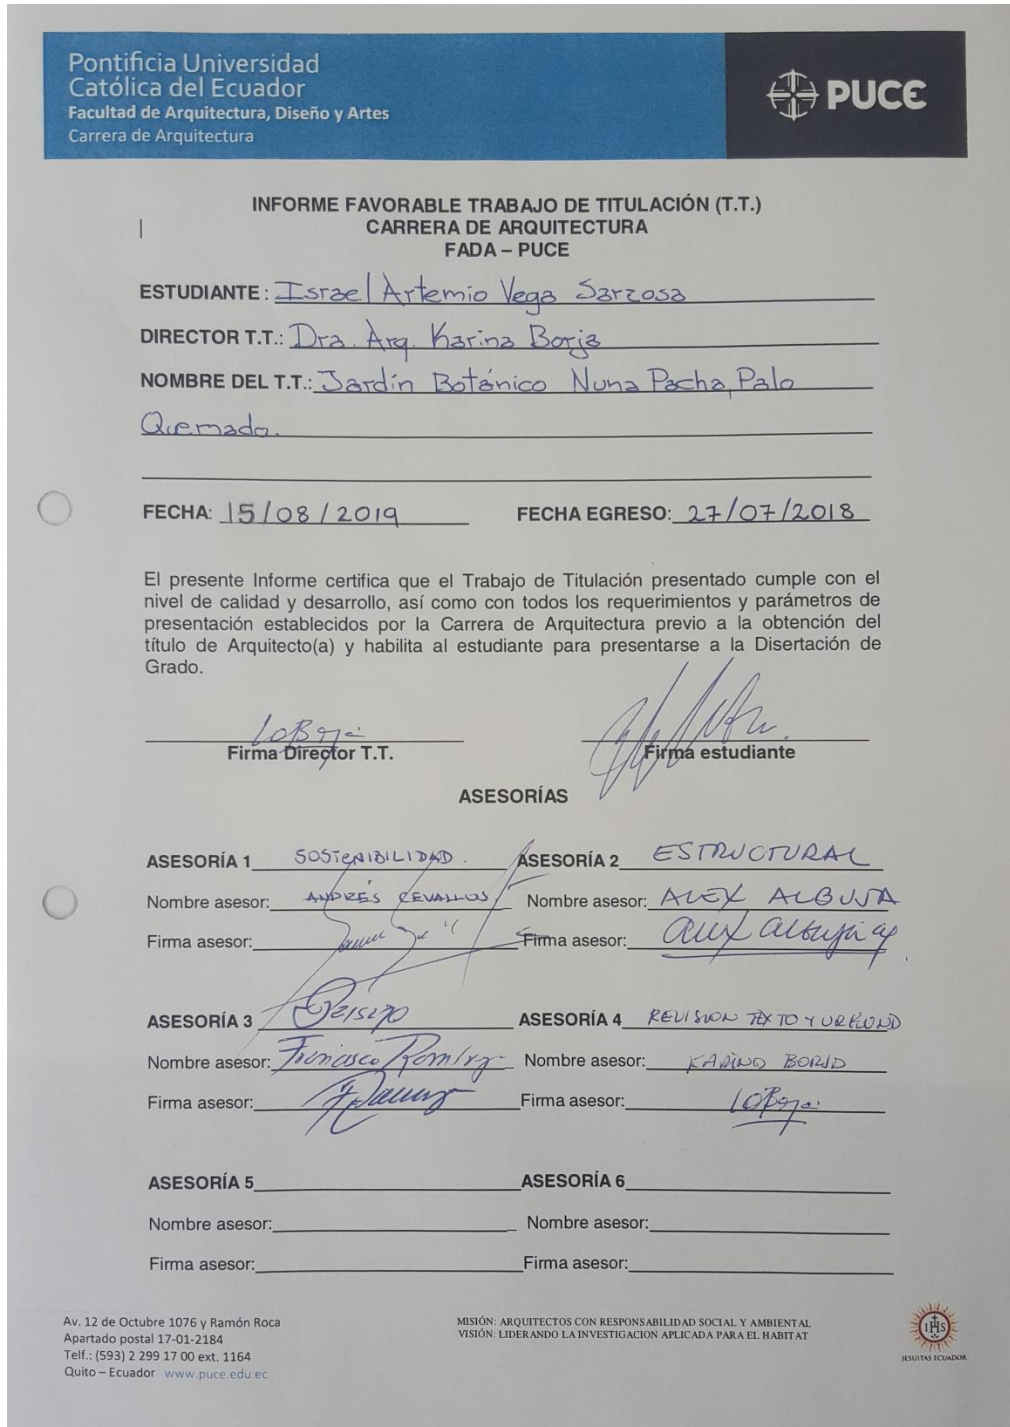 Pontificia Universidad
Católica del Ecuador
Facultad de Arquitectura, Diseño y Artes
Carrera de Arquitectura
PUCE
INFORME FAVORABLE TRABAJO DE TITULACIÓN (T.T.)
CARRERA DE ARQUITECTURA
FADA – PUCE
ESTUDIANTE: Israel Artemio Vega Sarzosa
DIRECTOR T.T.: Dra. Arq. Karina Borja
NOMBRE DEL T.T.: Jardín Botánico Nuna Pacha, Palo
Quemado.
FECHA: 15/08/2019 FECHA EGRESO: 27/07/2018
El presente Informe certifica que el Trabajo de Titulación presentado cumple con el
nivel de calidad y desarrollo, así como con todos los requerimientos y parámetros de
presentación establecidos por la Carrera de Arquitectura previo a la obtención del
título de Arquitecto(a) y habilita al estudiante para presentarse a la Disertación de
Grado.
Firma Director T.T. Firma estudiante
ASESORÍAS
ASESORÍA 1 SOSTENIBILIDAD. ASESORÍA 2 ESTRUCTURAL
Nombre asesor: ANDRÉS CEVALLOS Nombre asesor: ALEX ALBUJA
Firma asesor: Firma asesor: Alex Albuja
ASESORÍA 3 ASESORÍA 4 REVISION TEXTO Y
Nombre asesor: Francisco Ramírez Nombre asesor: KARINA BORJA
Firma asesor: Firma asesor:
ASESORÍA 5 ASESORÍA 6
Nombre asesor: Nombre asesor:
Firma asesor: Firma asesor:
Av. 12 de Octubre 1076 y Ramón Roca
Apartado postal 17-01-2184
Telf.: (593) 2 299 17 00 ext. 1164
Quito – Ecuador www.puce.edu.ec
MISIÓN: ARQUITECTOS CON RESPONSABILIDAD SOCIAL Y AMBIENTAL
VISIÓN: LIDERANDO LA INVESTIGACION APLICADA PARA EL HABITAT
IHS
JESUITAS ECUADOR